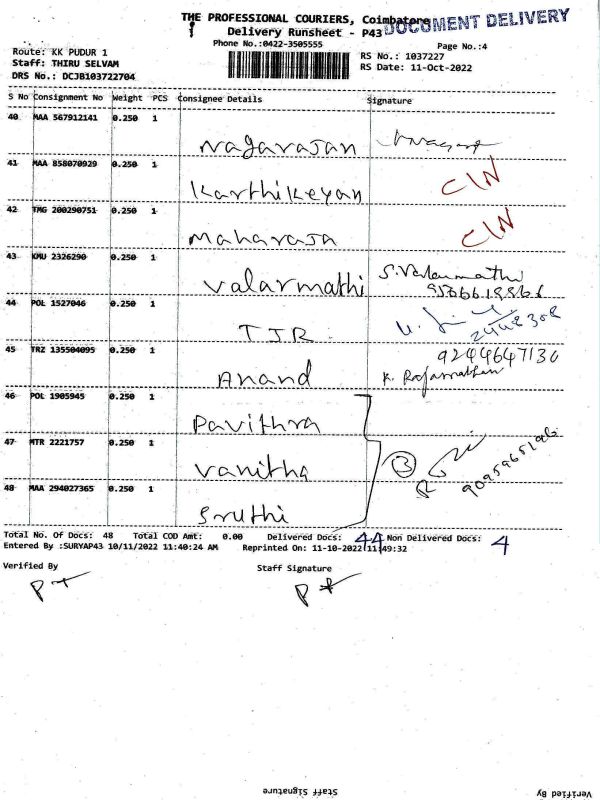 THE PROFESSIONAL COURIERS, Coimbatore
DOCUMENT DELIVERY
Delivery Runsheet - P43
Phone No.:0422-3505555
Page No.:4
Route: KK PUDUR 1
RS No.: 1037227
Staff: THIRU SELVAM
RS Date: 11-Oct-2022
DRS No.: DCJB103722704
S No Consignment No Weight PCS Consignee Details Signature
40 MAA 567912141 0.250 1
Nagarajan
41 MAA 858070929 0.250 1
Karthikeyan CIN
42 TMG 200290751 0.250 1
Maharaja CIN
43 KMU 2326290 0.250 1
Valarmathi S. Valarmathi
44 POL 1527046 0.250 1
TJR
45 TRZ 135504095 0.250 1 9244647130
Anand K.
46 POL 1905945 0.250 1
Pavithra
47 MTR 2221757 0.250 1
Vanitha 3
48 MAA 294027365 0.250 1
Sruthi
Total No. Of Docs: 48 Total COD Amt: 0.00 Delivered Docs: 44 Non Delivered Docs: 4
Entered By :SURYAP43 10/11/2022 11:40:24 AM Reprinted On: 11-10-2022 11:49:32
Verified By Staff Signature
Staff Signature Verified By